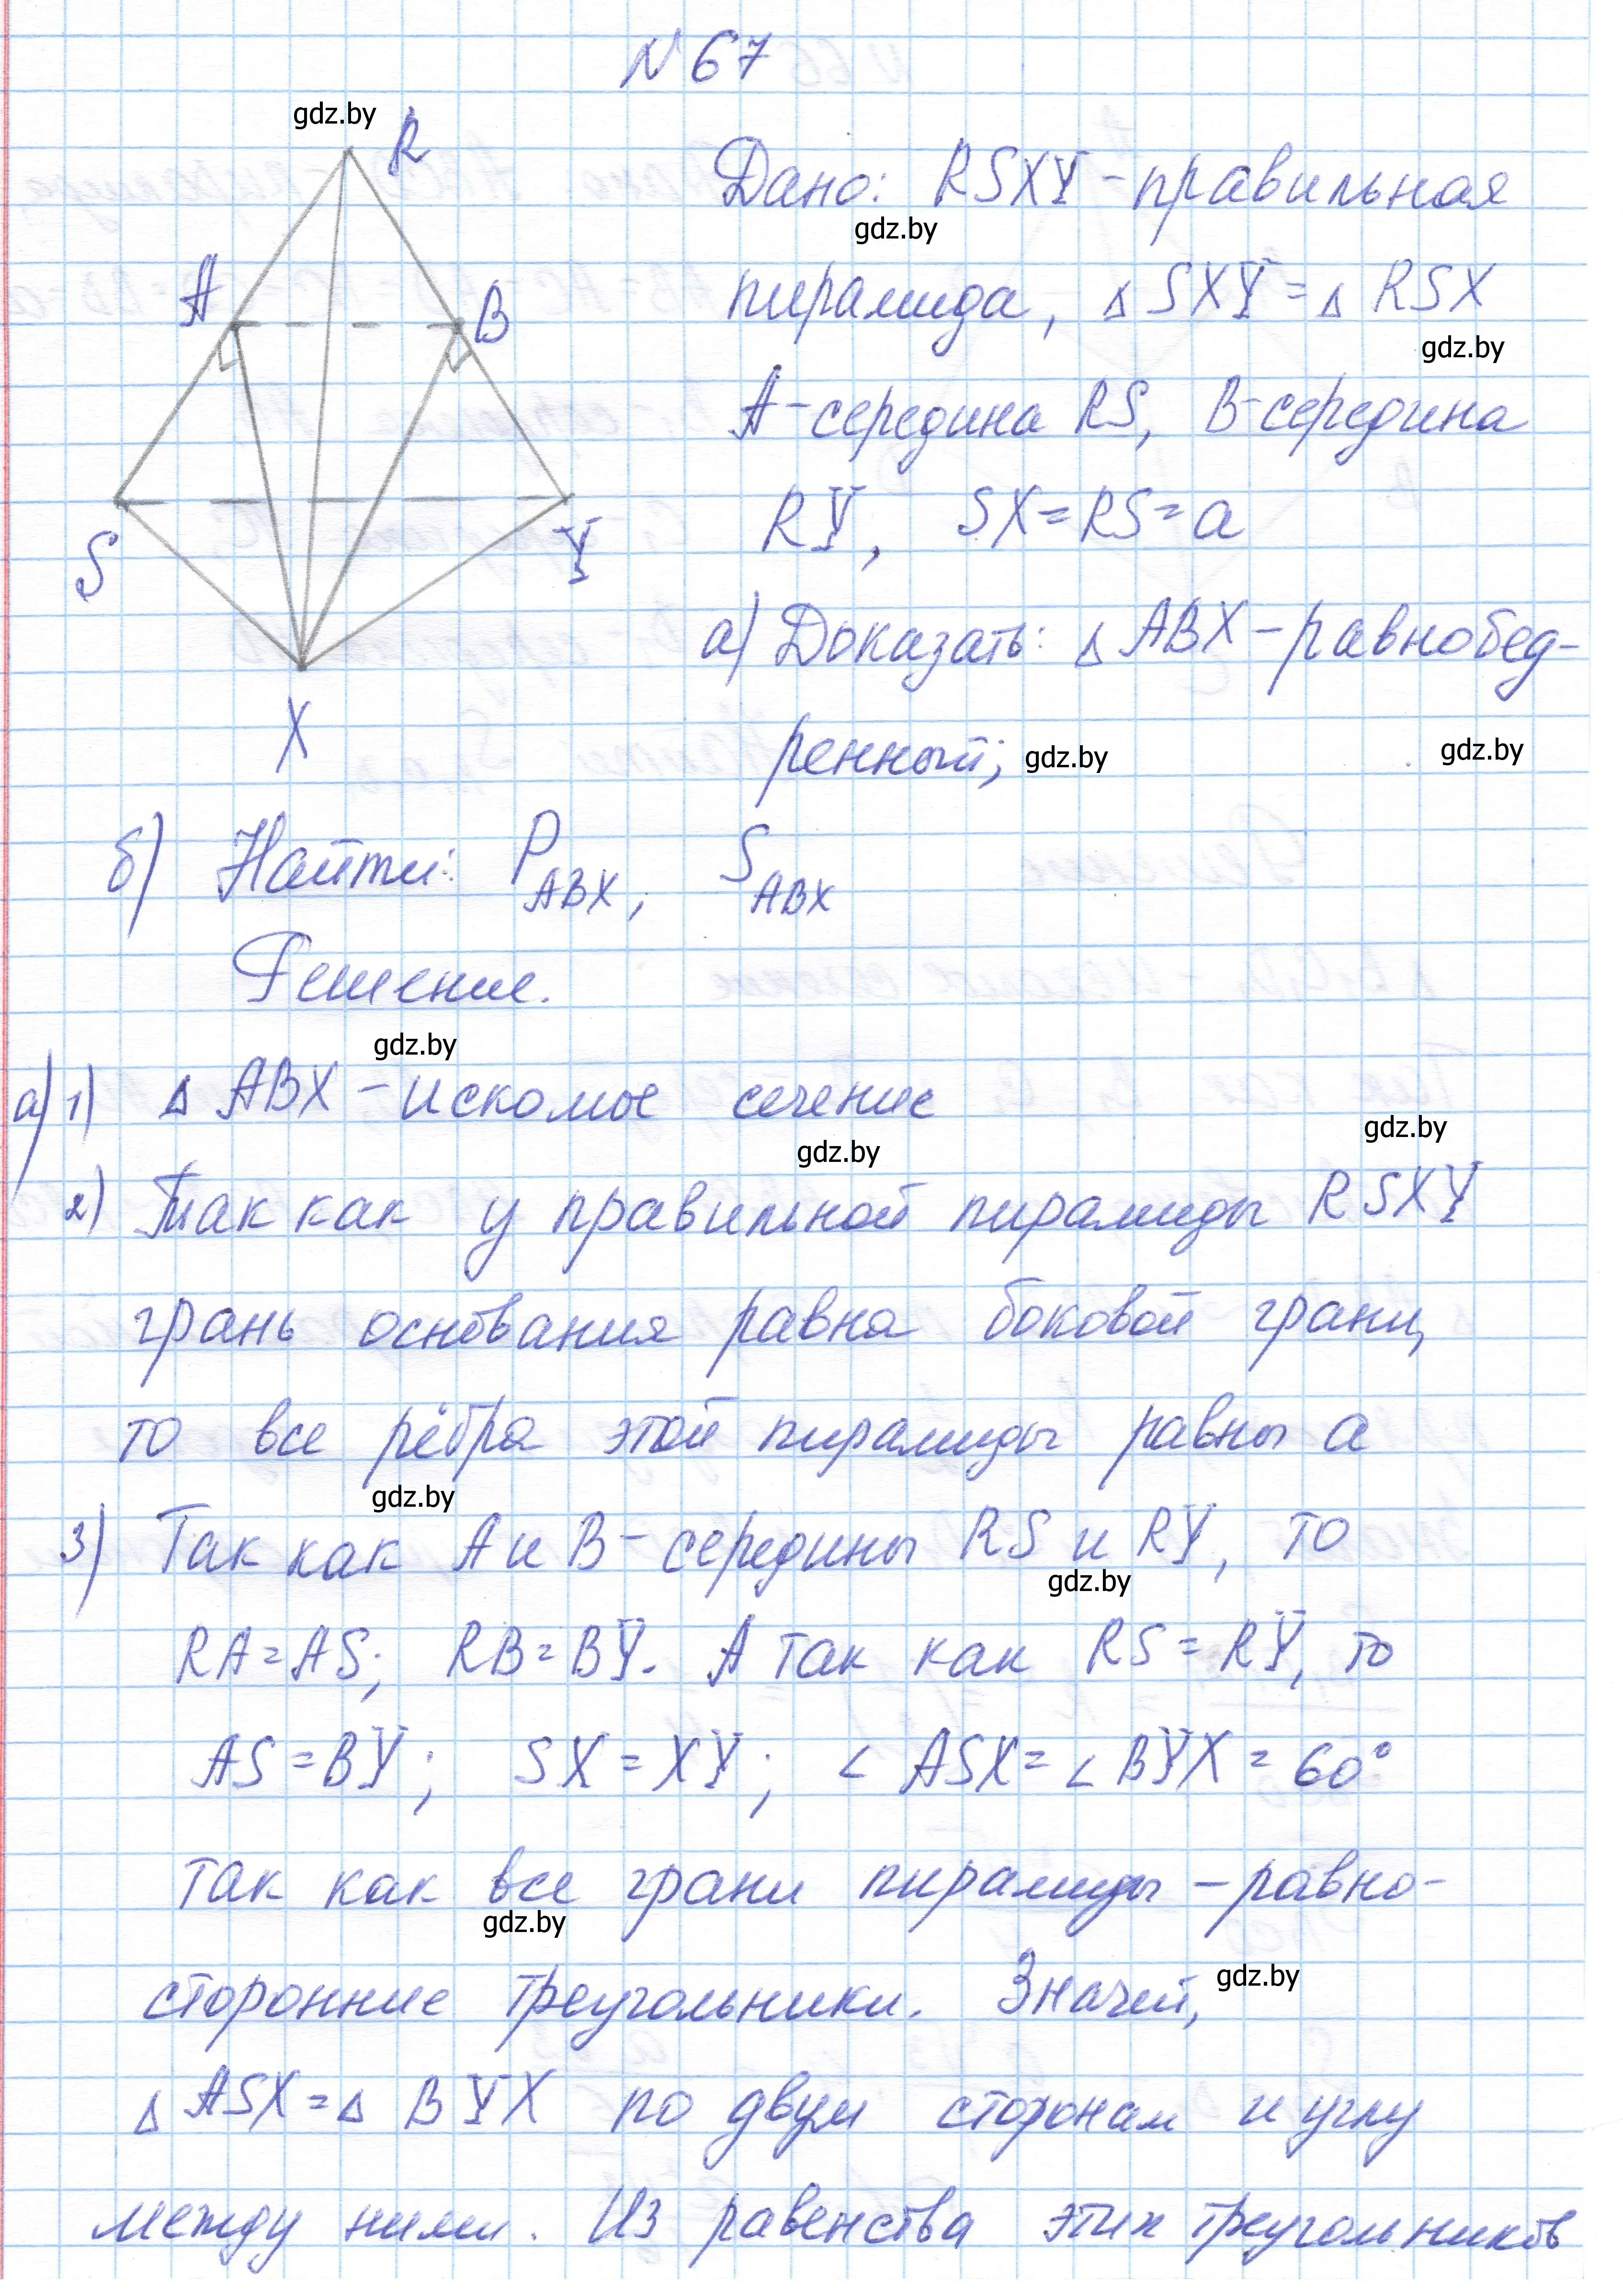 № 67
gdz.by
R
Дано: RSXY - правильная
gdz.by
пирамида, △ SXY = △ RSX
gdz.by
A
B
A - середина RS, B - середина
RY, SX = RS = a
S
Y
а) Доказать: △ ABX - равнобед-
ренный;
gdz.by
gdz.by
X
б) Найти: P ABX, S ABX
Решение.
gdz.by
а) 1) △ ABX - искомое сечение
gdz.by
gdz.by
2) Так как у правильной пирамиды RSXY
грань основания равна боковой грани,
то все рёбра этой пирамиды равны a
gdz.by
3) Так как A и B - середины RS и RY, то
gdz.by
RA = AS; RB = BY. А так как RS = RY, то
AS = BY; SX = XY; ∠ ASX = ∠ BYX = 60°
так как все грани пирамиды - равно-
gdz.by
сторонние треугольники. Значит,
gdz.by
△ ASX = △ BYX по двум сторонам и углу
между ними. Из равенства этих треугольников